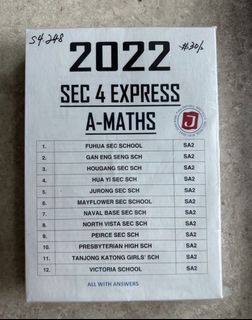 S4 248
#30/-
2022
SEC 4 EXPRESS
A-MATHS
1. FUHUA SEC SCHOOL SA2
2. GAN ENG SENG SCH SA2
3. HOUGANG SEC SCH SA2
4. HUA YI SEC SCH SA2
5. JURONG SEC SCH SA2
6. MAYFLOWER SEC SCHOOL SA2
7. NAVAL BASE SEC SCH SA2
8. NORTH VISTA SEC SCH SA2
9. PEIRCE SEC SCH SA2
10. PRESBYTERIAN HIGH SCH SA2
11. TANJONG KATONG GIRLS' SCH SA2
12. VICTORIA SCHOOL SA2
ALL WITH ANSWERS